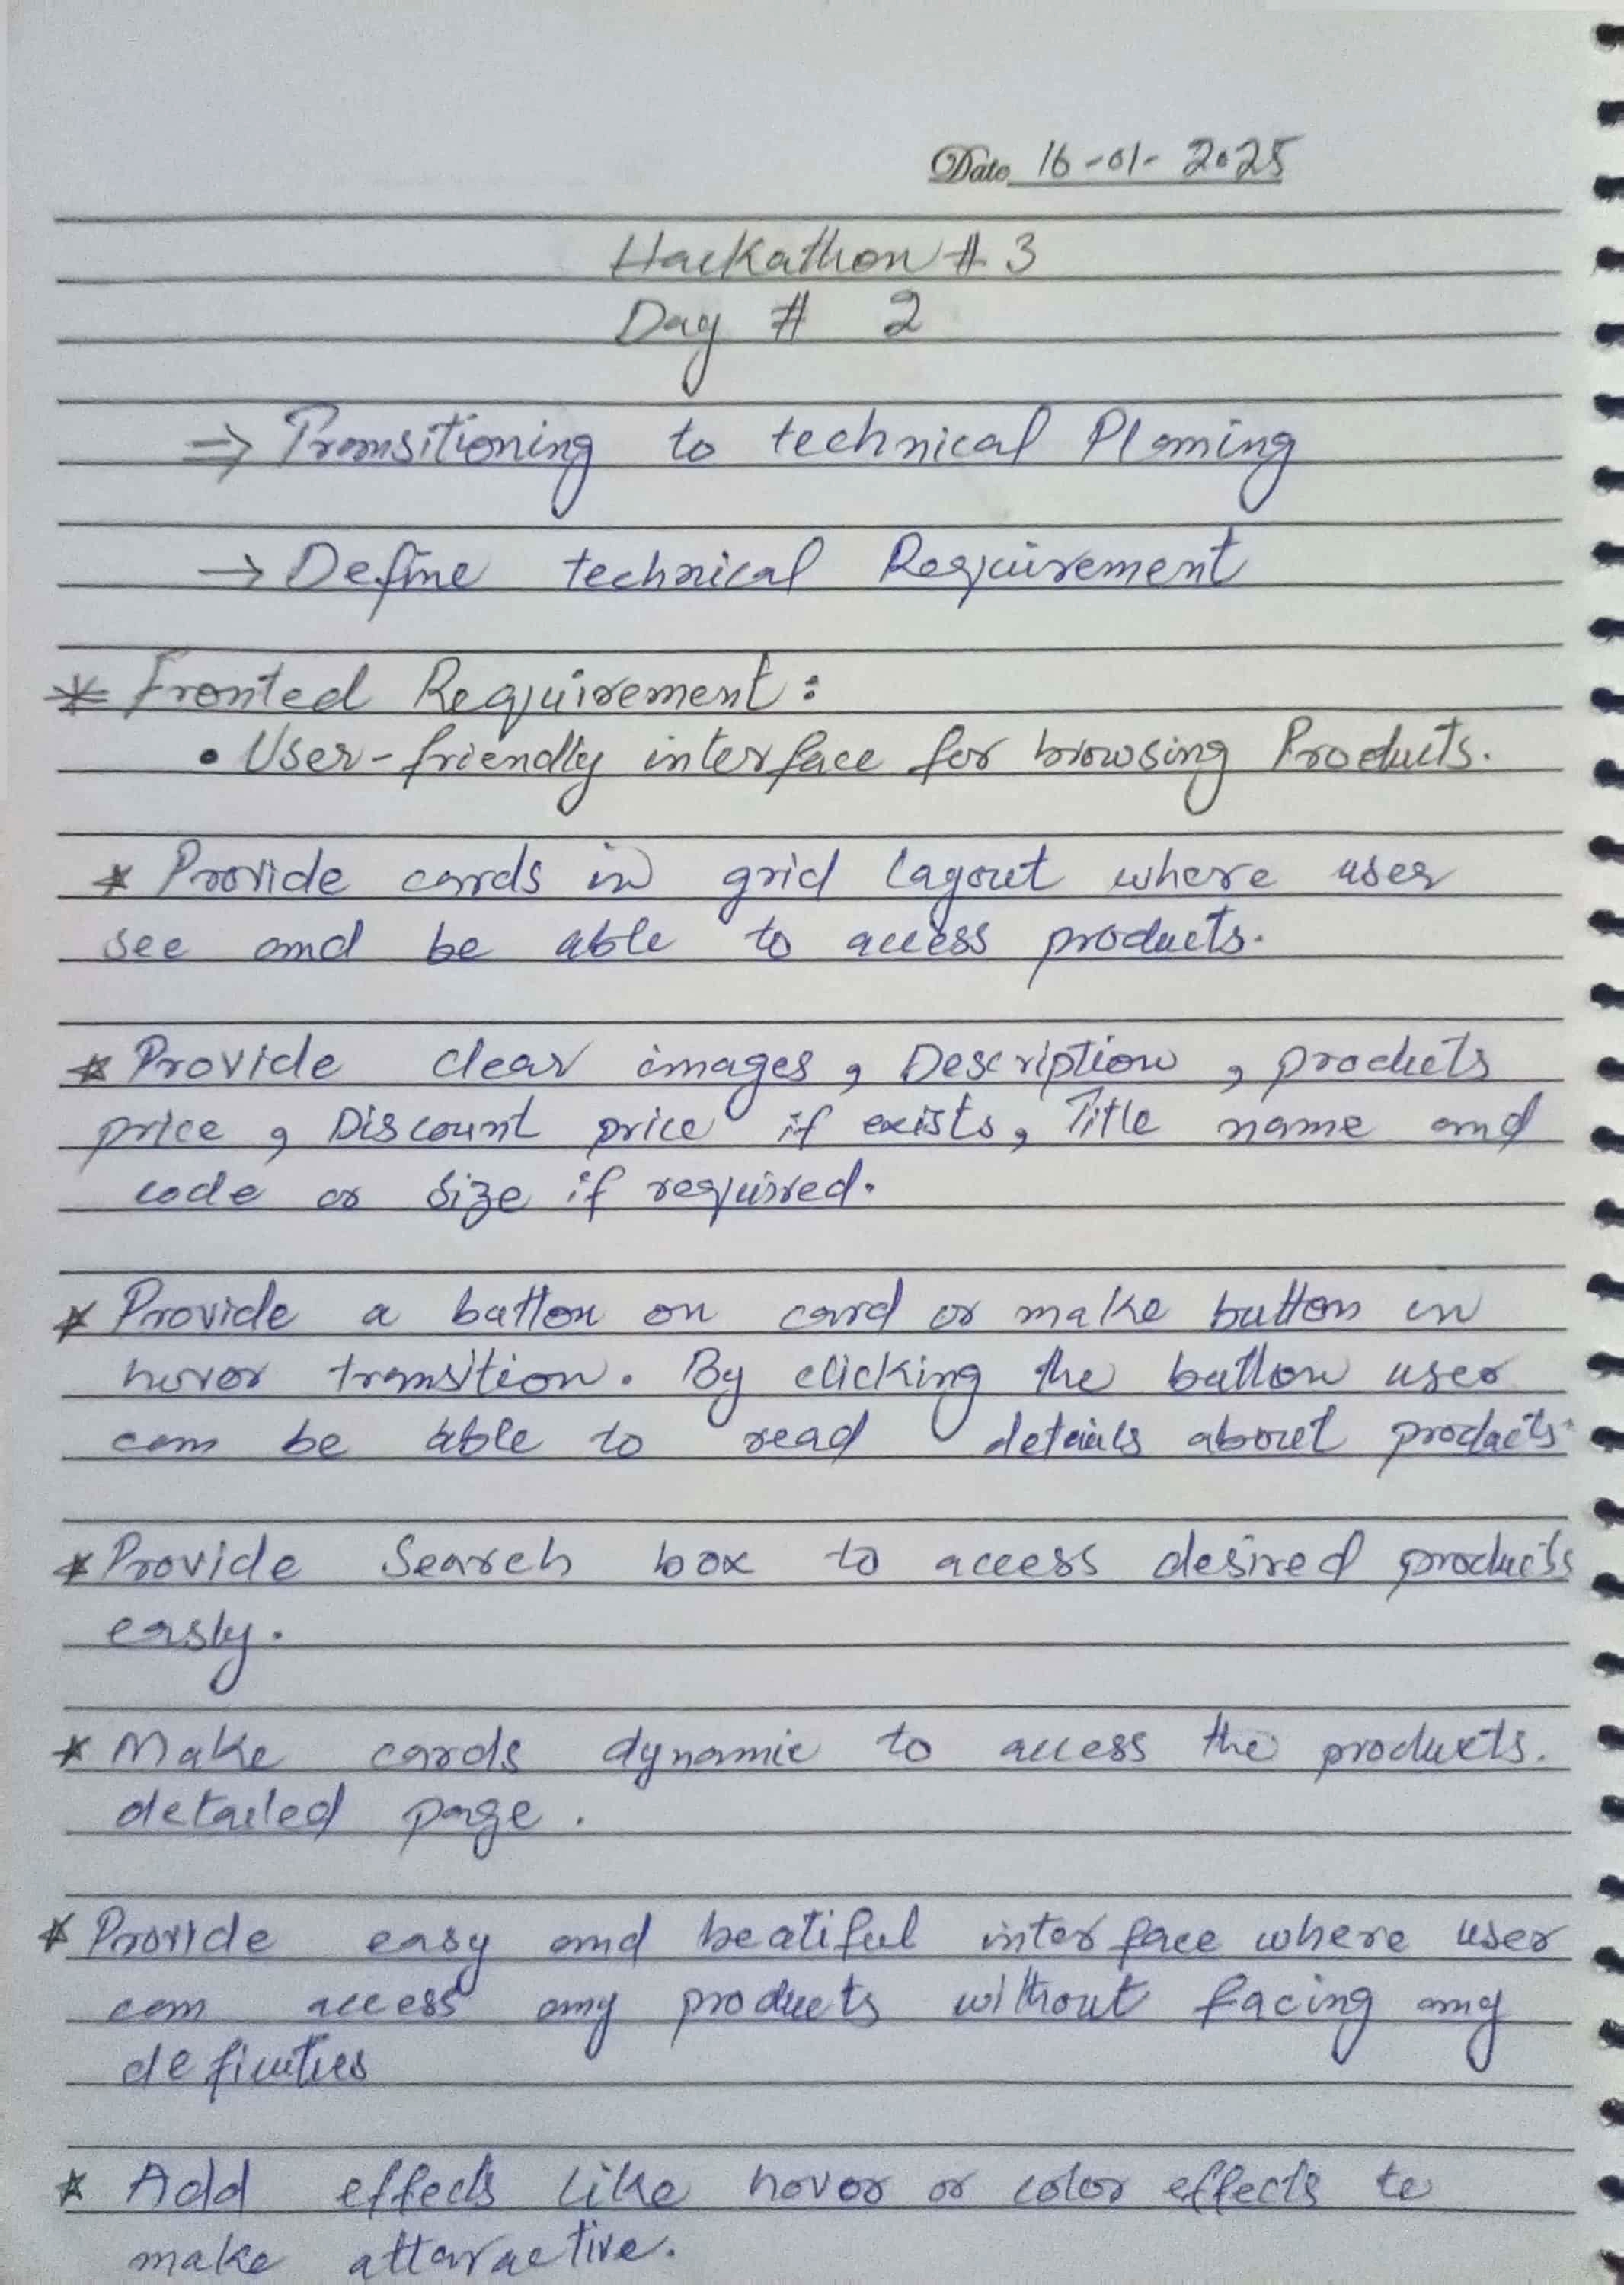 Date 16-01-2025
Hackathon # 3
Day # 2
⇒ Transitioning to technical Planing
→ Define technical Requirement
* Fronted Requirement:
• User-friendly interface for browsing Products.
* Provide cards in grid layout where user
see and be able to access products.
* Provide clear images, Description, products
price, Discount price if exists, Title name and
code or size if required.
* Provide a button on card or make button in
hovor transition. By clicking the button user
can be able to read details about products.
* Provide Search box to access desired products
easly.
* Make cards dynamic to access the products.
detailed page.
* Provide easy and beatiful interface where user
can access any products without facing any
* Add effects like hovor or color effects to
make attaractive.